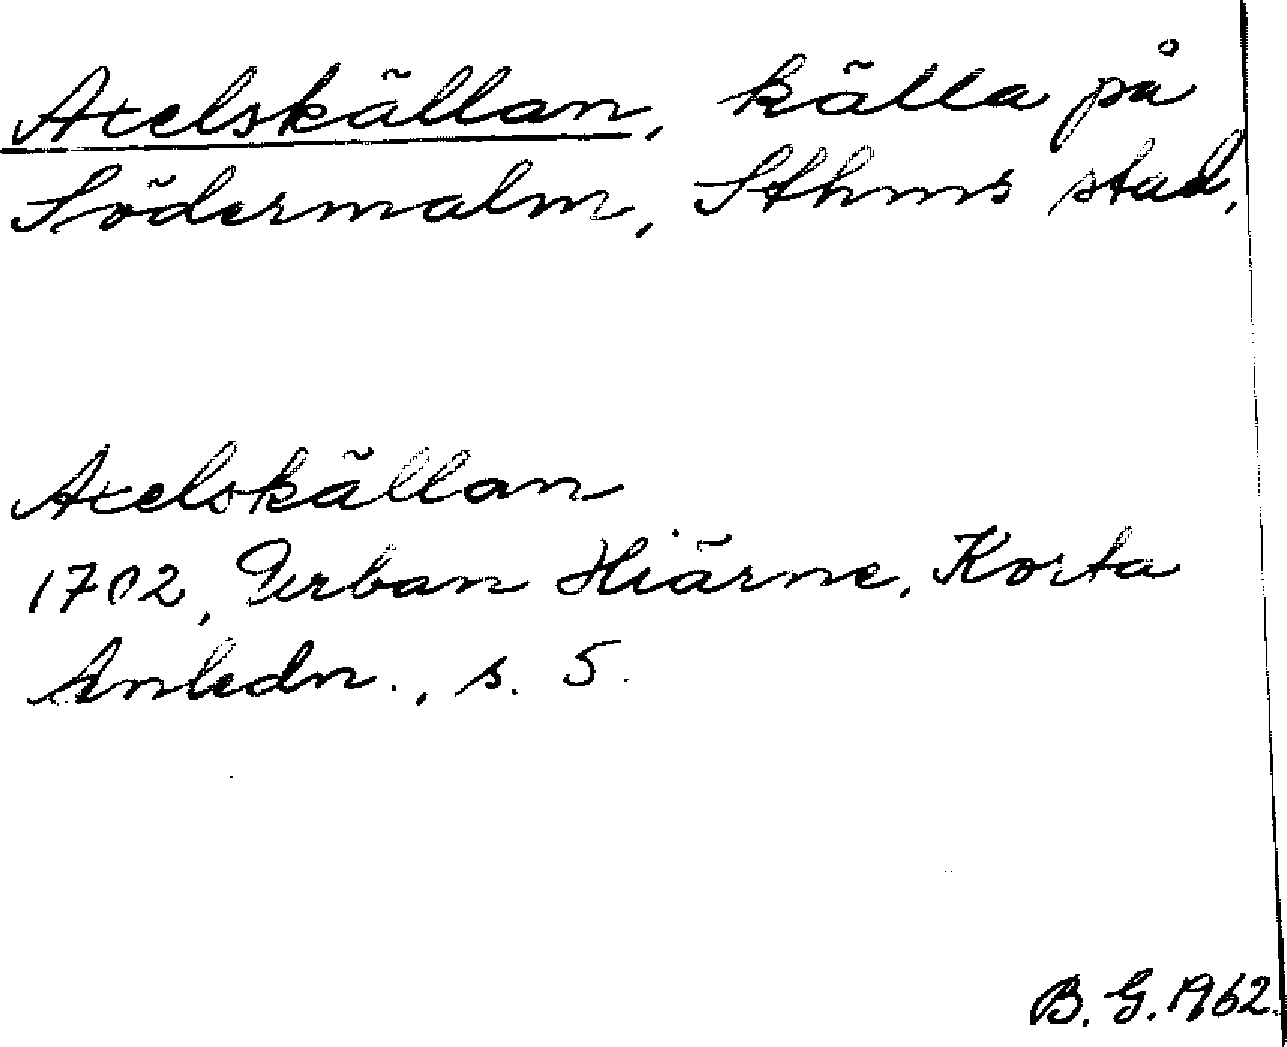 Axelskällan, källa på
Södermalm, Sthms stad,
Axelskällan
1702, Urban Hiärne, Korta
Anledn., s. 5.
B. G. 1962.